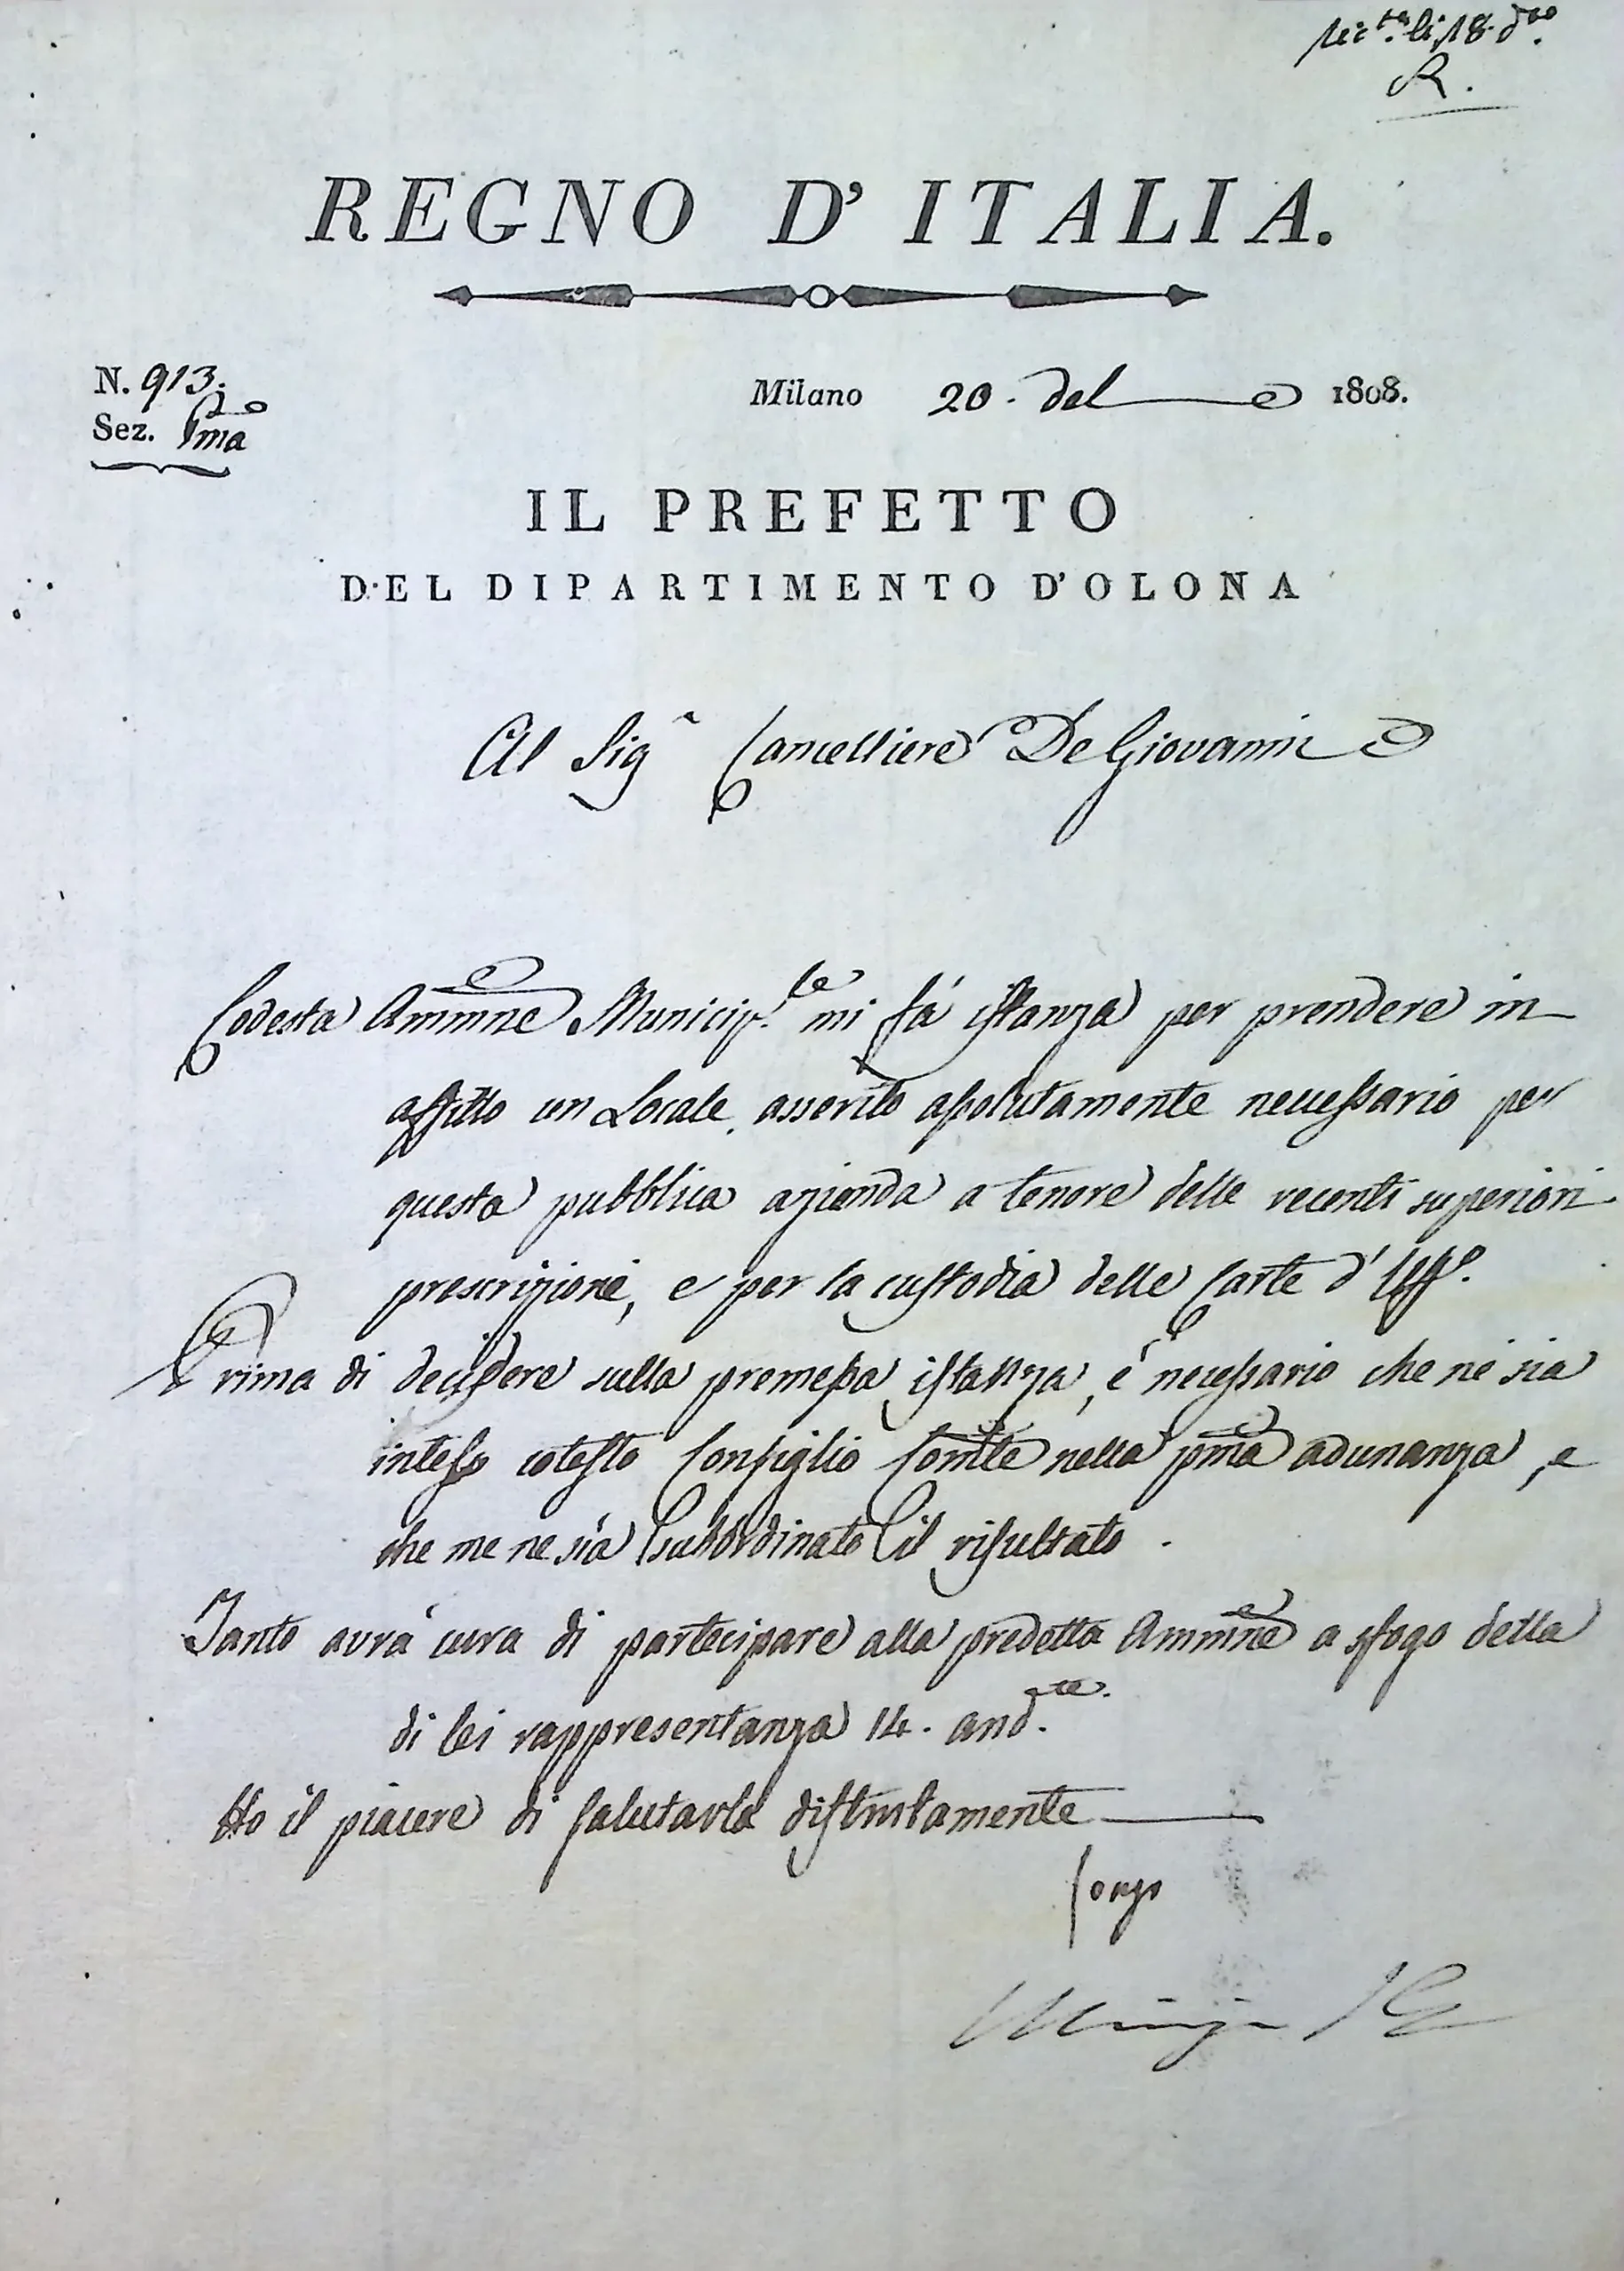 li 18. d.to
R.
REGNO D' ITALIA.
N. 913.
Milano 20. del 1808.
Sez. Pma
IL PREFETTO
DEL DIPARTIMENTO D'OLONA
Al Sigr Cancelliere De Giovanni
Codesta Ammne Municip.le mi fá istanza per prendere in
affitto un Locale, asserito assolutamente necessario per
questa pubblica azienda a tenore delle recenti superiori
prescrizioni, e per la custodia delle Carte d'Uffo.
Prima di decidere sulla premessa istanza, é necessario che ne sia
inteso cotesto Consiglio Comle nella pma adunanza, e
che me ne sia subbordinato il risultato.
Tanto avrá cura di partecipare alla predetta Ammne a sfogo della
di lei rappresentanza 14. and.te
Ho il piacere di salutarla distintamente